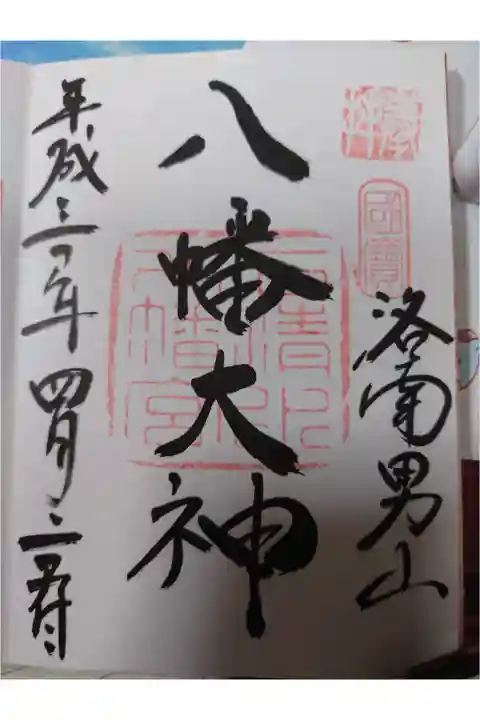 國寶
洛南男山
八幡大神
石清水
八幡宮
平成三十年四月二